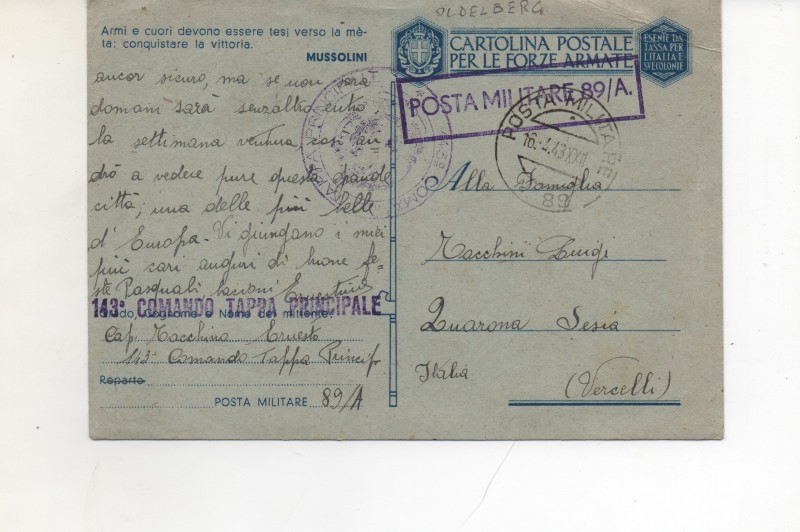 OLDELBERG
Armi e cuori devono essere tesi verso la mè-
ta: conquistare la vittoria.
MUSSOLINI
ancor sicuro, ma se non sarà
domani sarà senz'altro entro
la settimana ventura così an
drò a vedere pure questa grande
città; una delle più belle
d'Europa. Vi giungano i miei
più cari auguri di buone fe-
ste Pasquali bacioni Ernestino
143° COMANDO TAPPA PRINCIPALE
Grado, Cognome e Nome del mittente
Cap. Tocchino Ernesto
143° Comando Tappa Princip
Reparto
POSTA MILITARE 89/A
CARTOLINA POSTALE
PER LE FORZE ARMATE
ESENTE DA
TASSA PER
L'ITALIA E
SUE COLONIE
POSTA MILITARE 89/A.
POSTA MILITARE
16.4.43 XXI
89
Alla Famiglia
Luigi
Quarona Sesia
Italia
(Vercelli)